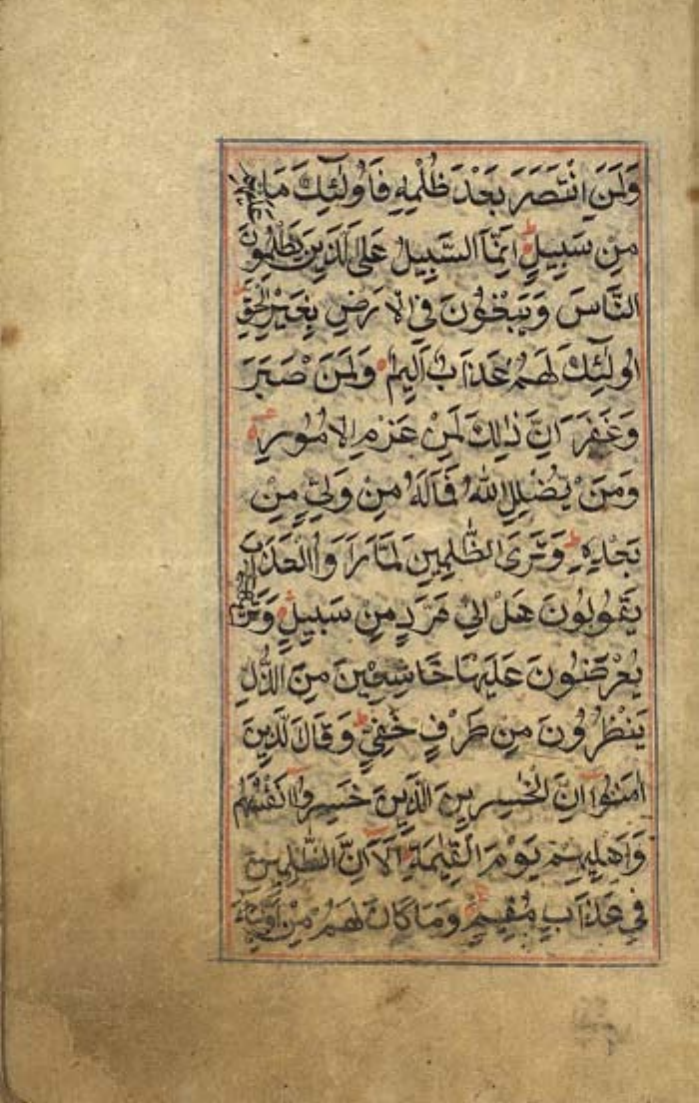 وَلَمَنِ انْتَصَرَ بَعْدَ ظُلْمِهِ فَاُولٰٓئِكَ مَا عَلَيْهِمْ
مِنْ سَبِيلٍ اِنَّمَا السَّبِيلُ عَلَى الَّذِينَ يَظْلِمُونَ
النَّاسَ وَيَبْغُونَ فِي الْاَرْضِ بِغَيْرِ الْحَقِّ
اُولٰٓئِكَ لَهُمْ عَذَابٌ اَلِيمٌ وَلَمَنْ صَبَرَ
وَغَفَرَ اِنَّ ذٰلِكَ لَمِنْ عَزْمِ الْاُمُورِ
وَمَنْ يُضْلِلِ اللّٰهُ فَمَالَهُ مِنْ وَلِيٍّ مِنْ
بَعْدِهِ وَتَرَى الظّٰلِمِينَ لَمَّا رَاَوُا الْعَذَابَ
يَقُولُونَ هَلْ اِلٰى مَرَدٍّ مِنْ سَبِيلٍ وَتَرٰيهُمْ
يُعْرَضُونَ عَلَيْهَا خَاشِعِينَ مِنَ الذُّلِّ
يَنْظُرُونَ مِنْ طَرْفٍ خَفِيٍّ وَقَالَ الَّذِينَ
اٰمَنُوا اِنَّ الْخٰسِرِينَ الَّذِينَ خَسِرُوا اَنْفُسَهُمْ
وَاَهْلِيهِمْ يَوْمَ الْقِيٰمَةِ اَلَا اِنَّ الظّٰلِمِينَ
فِي عَذَابٍ مُقِيمٍ وَمَا كَانَ لَهُمْ مِنْ اَوْلِيَاءَ